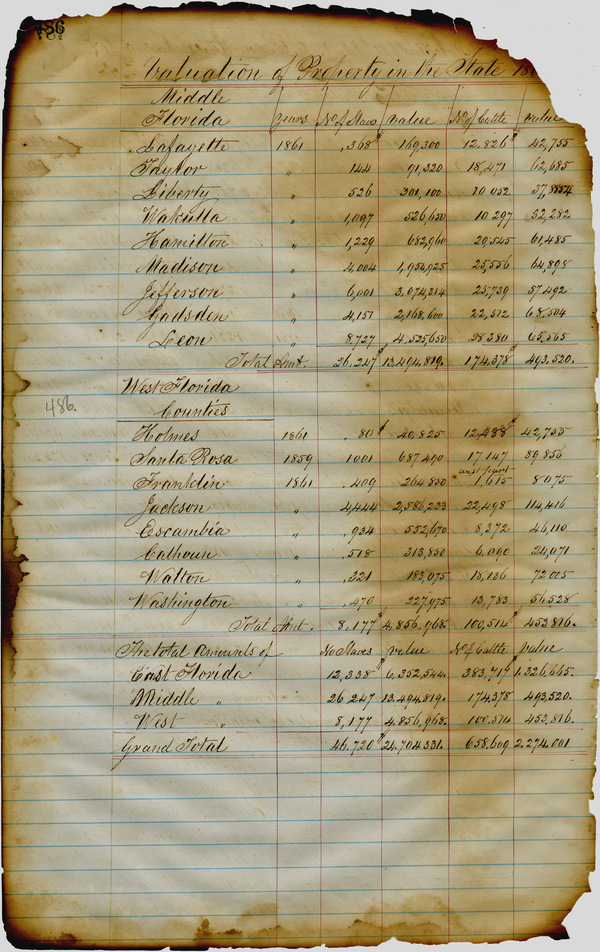 486
Valuation of Property in the State 18
Middle
Florida years No of Slaves value No of Cattle value
Lafayette 1861 .368 $169,300 12,826 $42,755
Taylor " 144 91,320 18,471 62,685
Liberty " 526 301,100 10 052
Wakulla " 1,097 526,650 10 297 32,282
Hamilton " 1,229 682,960 29,545 61,485
Madison " 4,004 1,954,925 25,556 64,898
Jefferson " 6,001 3,074,314 25,739 57,492
Gadsden " 4,151 2,168,600 22,512 68,504
Leon " 8,727 4.525650 28 380 65,565
Total Amt. 26.247 $13.494.819. 174,378 $493.520.
West Florida
486.
Counties
Holmes 1861 .80 $40,825 12,488 $42,755
Santa Rosa 1859 1001 687 490 17 147 89,856
west point
Franklin 1861 .409 264 850 1,615 8 075
Jackson " 4444 2,586,233 22,498 114,416
Escambia " .934 552,670 8,372 46,110
Calhoun " .518 313,850 6,090 24,071
Walton " .321 183,075 18,136 72 005
Washington " .470 227,975 13,783 56,528
Total Amt. 8,177 $4.856,968. 100,514 $453 816.
The total Amounts of No Slaves value No of Cattle value
East Florida 12,338 $6,352,544. 383,717 $1.326,665.
Middle " 26 247 13.494.819. 174,378 493,520.
West " 8,177 4.856,968. 100.514 453,816.
Grand Total 46.720 $24.704.331. 658,609 2.274.001